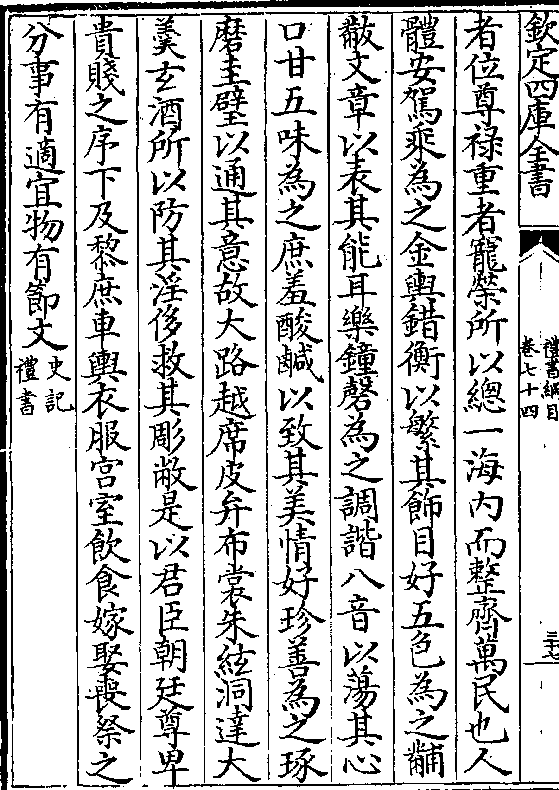 欽定四庫全書
禮書綱目
卷七十四
三十七
者位尊祿重者寵榮所以總一海內而整齊萬民也人
體安駕乘為之金輿錯衡以繁其飾目好五色為之黼
黻文章以表其能耳樂鐘磬為之調諧八音以蕩其心
口甘五味為之庶羞酸鹹以致其美情好珍善為之琢
磨圭璧以通其意故大路越席皮弁布裳朱絃洞達大
羹玄酒所以防其淫侈救其彫敝是以君臣朝廷尊卑
貴賤之序下及黎庶車輿衣服宫室飲食嫁娶喪祭之
分事有適宜物有節文史記
禮書